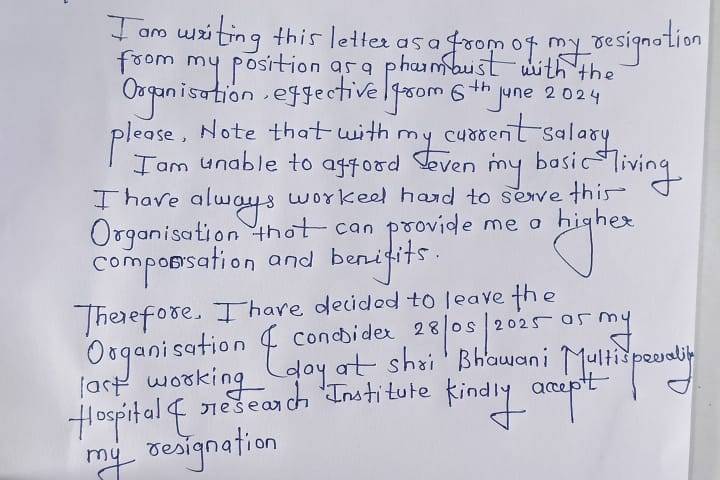 I am writing this letter as a from of my resignation
from my position as a pharmbuist with the
Organisation, effective from 6th june 2024
please, Note that with my current salary
I am unable to afford even my basic living
I have always worked hard to serve this
Organisation that can provide me a higher
comporsation and benifits.
Therefore, I have decided to leave the
Organisation & condsider 28/05/2025 as my
last working day at shri Bhawani Multispecality
Hospital & research Institute kindly accept
my resignation